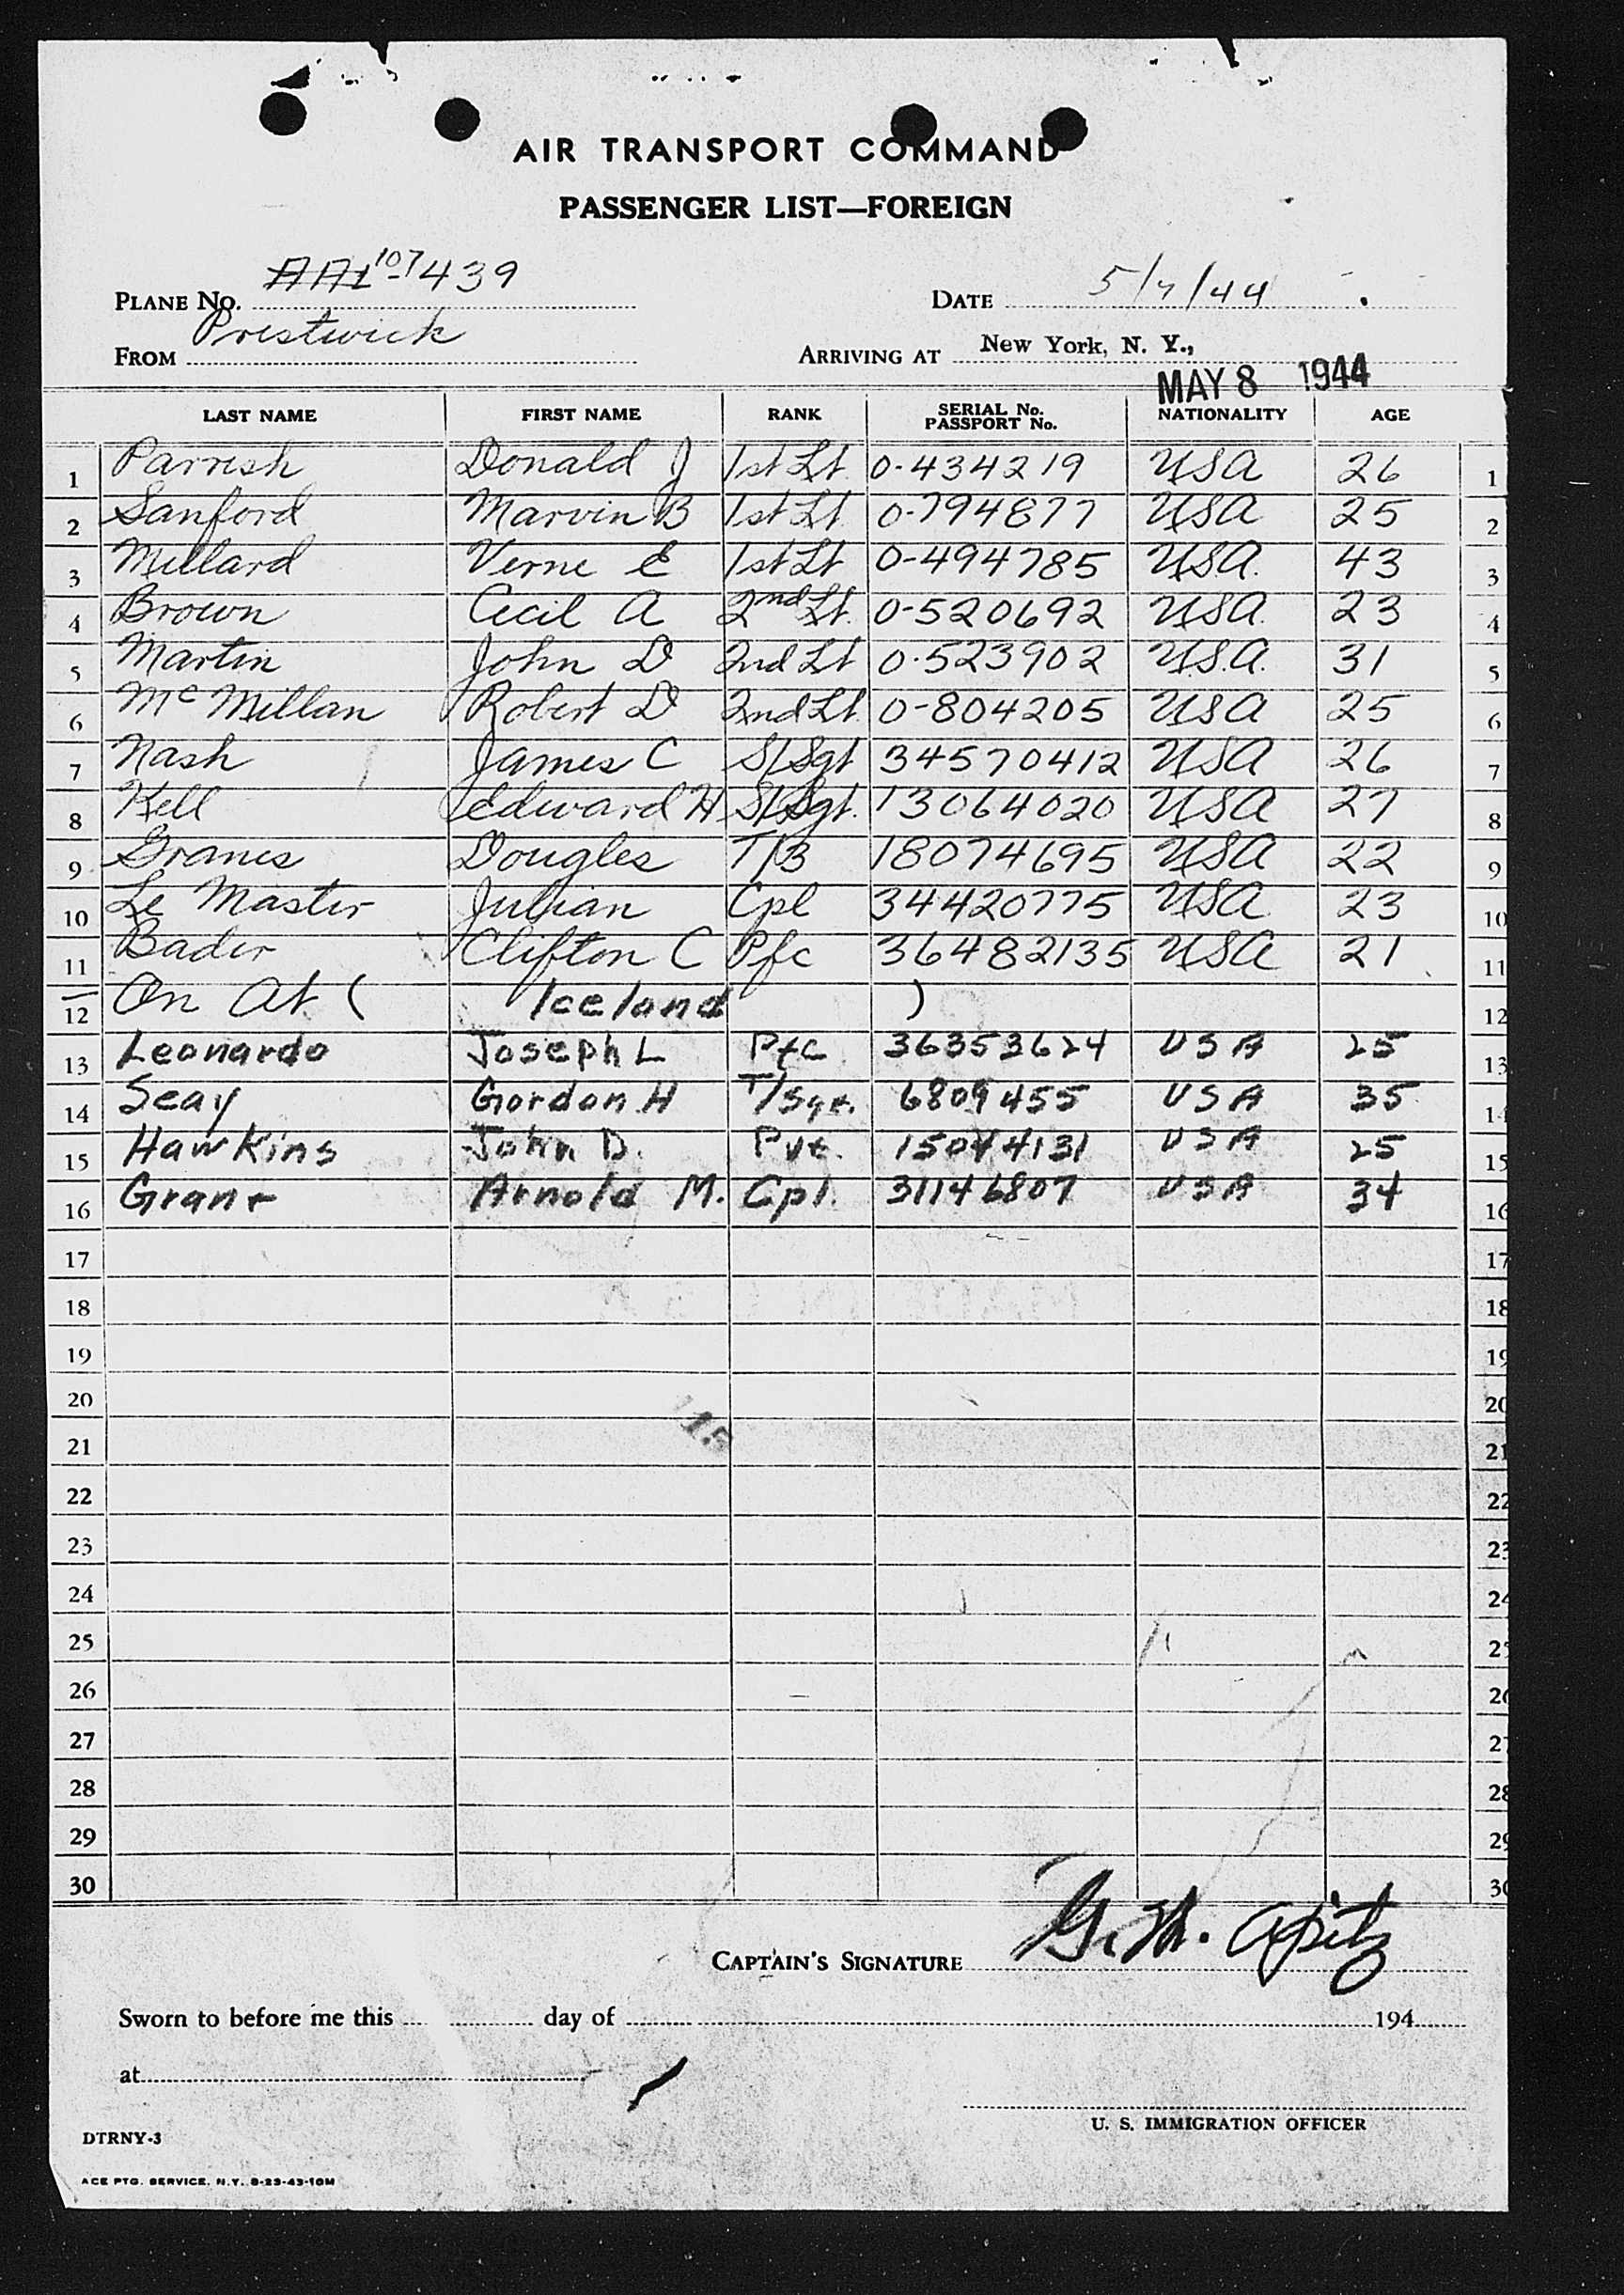 AIR TRANSPORT COMMAND
PASSENGER LIST—FOREIGN
PLANE No. AAL 107439
DATE 5/7/44
FROM Prestwick
ARRIVING AT New York, N. Y.,
MAY 8 1944
LAST NAME FIRST NAME RANK SERIAL No. PASSPORT No. NATIONALITY AGE
1 Parrish Donald J 1st Lt. 0-434219 USA 26 1
2 Sanford Marvin B 1st Lt. 0-794877 USA 25 2
3 Millard Verne E 1st Lt 0-494785 USA. 43 3
4 Brown Cecil A 2nd Lt. 0-520692 USA. 23 4
5 Martin John D 2nd Lt 0-523902 U.S.A. 31 5
6 McMillan Robert D 2nd Lt. 0-804205 USA 25 6
7 Nash James C S/Sgt 34570412 USA 26 7
8 Kell Edward H S/Sgt. 13064020 USA 27 8
9 Granes Dougles T/3 18074695 USA 22 9
10 Le Master Julian Cpl 34420775 USA 23 10
11 Bader Clifton C Pfc 36482135 USA 21 11
12 On At ( Iceland ) 12
13 Leonardo Joseph L Pfc 36353624 USA 25 13
14 Seay Gordon H T/Sgt. 6809455 USA 35 14
15 Hawkins John D. Pvt. 15044131 USA 25 15
16 Grant Arnold M. Cpl. 31146807 USA 34 16
17 17
18 18
19 19
20 20
21 21
22 22
23 23
24 24
25 25
26 26
27 27
28 28
29 29
30 30
CAPTAIN'S SIGNATURE G. M. Apitz
Sworn to before me this day of 194
at
U. S. IMMIGRATION OFFICER
DTRNY-3
ACE PTG. SERVICE, N.Y. 8-23-43-10M